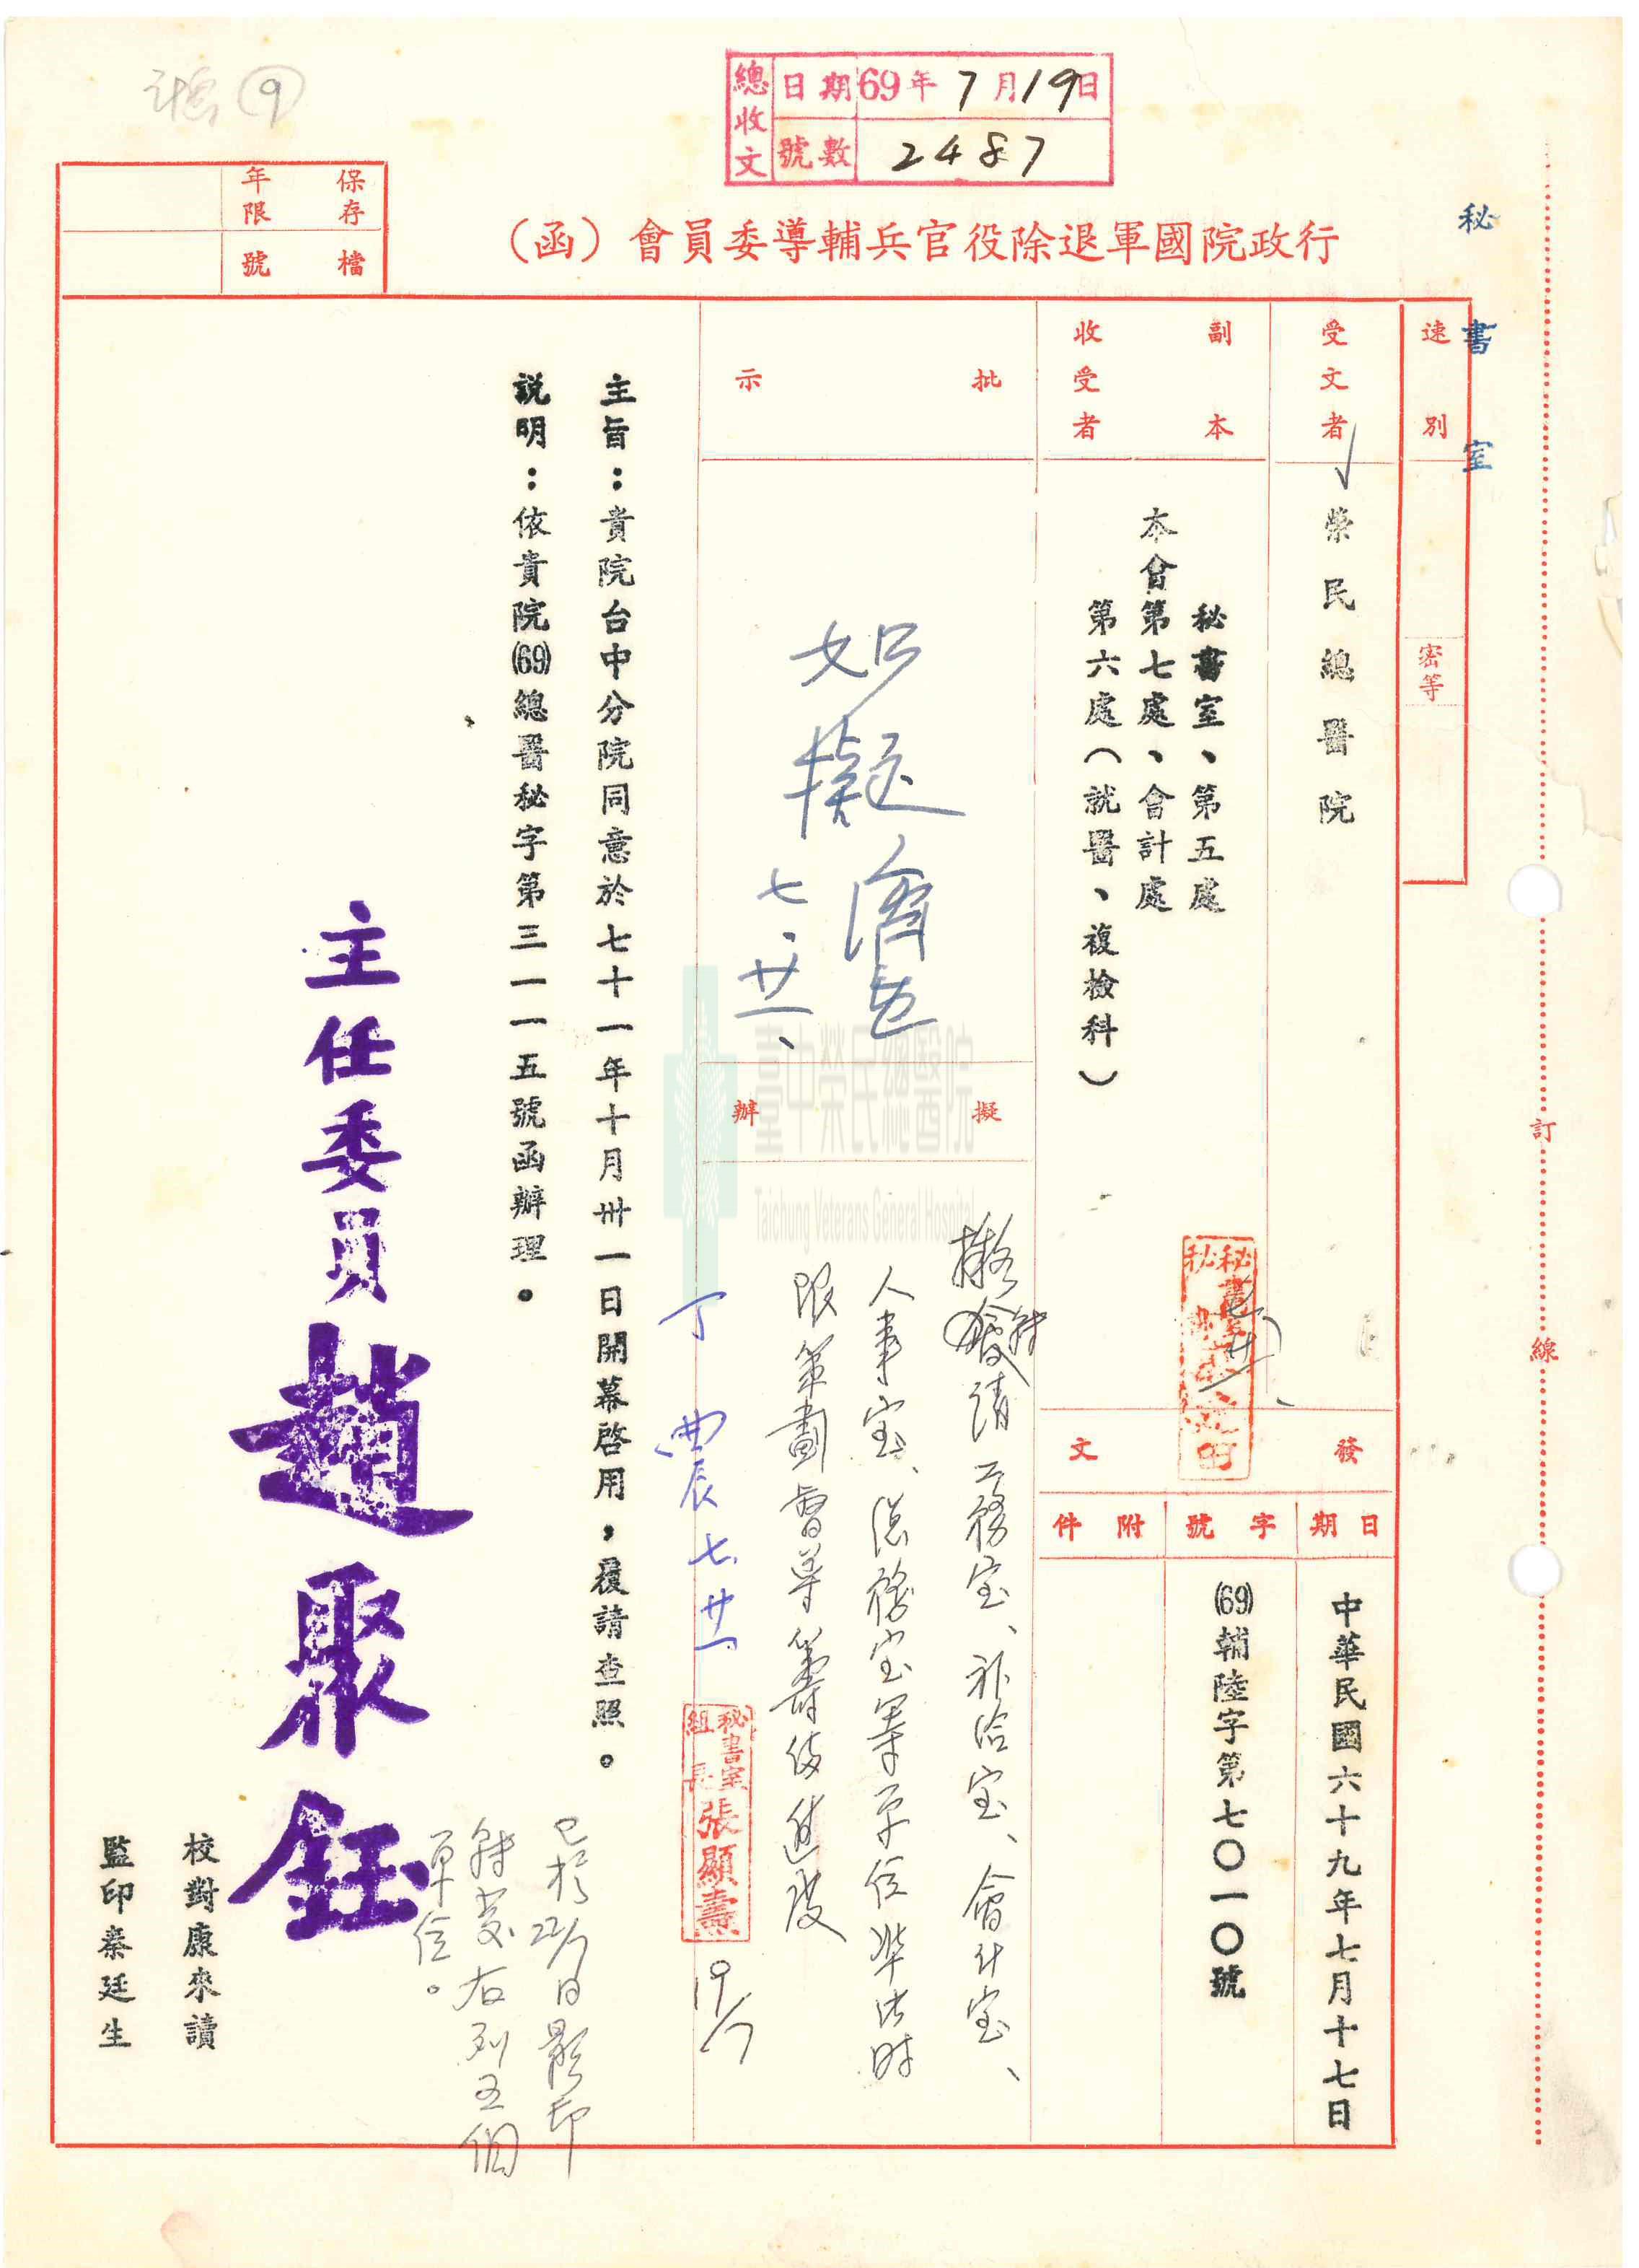 總收文
日期 69年7月19日
號數 2487
保存年限
檔號
行政院國軍退除役官兵輔導委員會(函)
秘書室
速別
密等
受文者
榮民總醫院
副本收受者
秘書室、第五處
本會第七處、會計處
第六處(就醫、複檢科)
發文
日期
中華民國六十九年七月十七日
字號
(69)輔陸字第七〇一〇號
附件
批示
如擬
七、廿一、
擬辦
請工務室、補給室、會計室、
人事室、總務室等單位準時
限策劃督導籌備進度
丁農七廿一
秘書室
組長張顯壽
19/7
主旨:貴院台中分院同意於七十一年十月卅一日開幕啓用,復請查照。
說明:依貴院(69)總醫秘字第三一一五號函辦理。
已於22/7日影印
轉發右列五個
單位。
主任委員趙聚鈺
校對康來讀
監印秦廷生
訂線
臺中榮民總醫院
Taichung Veterans General Hospital